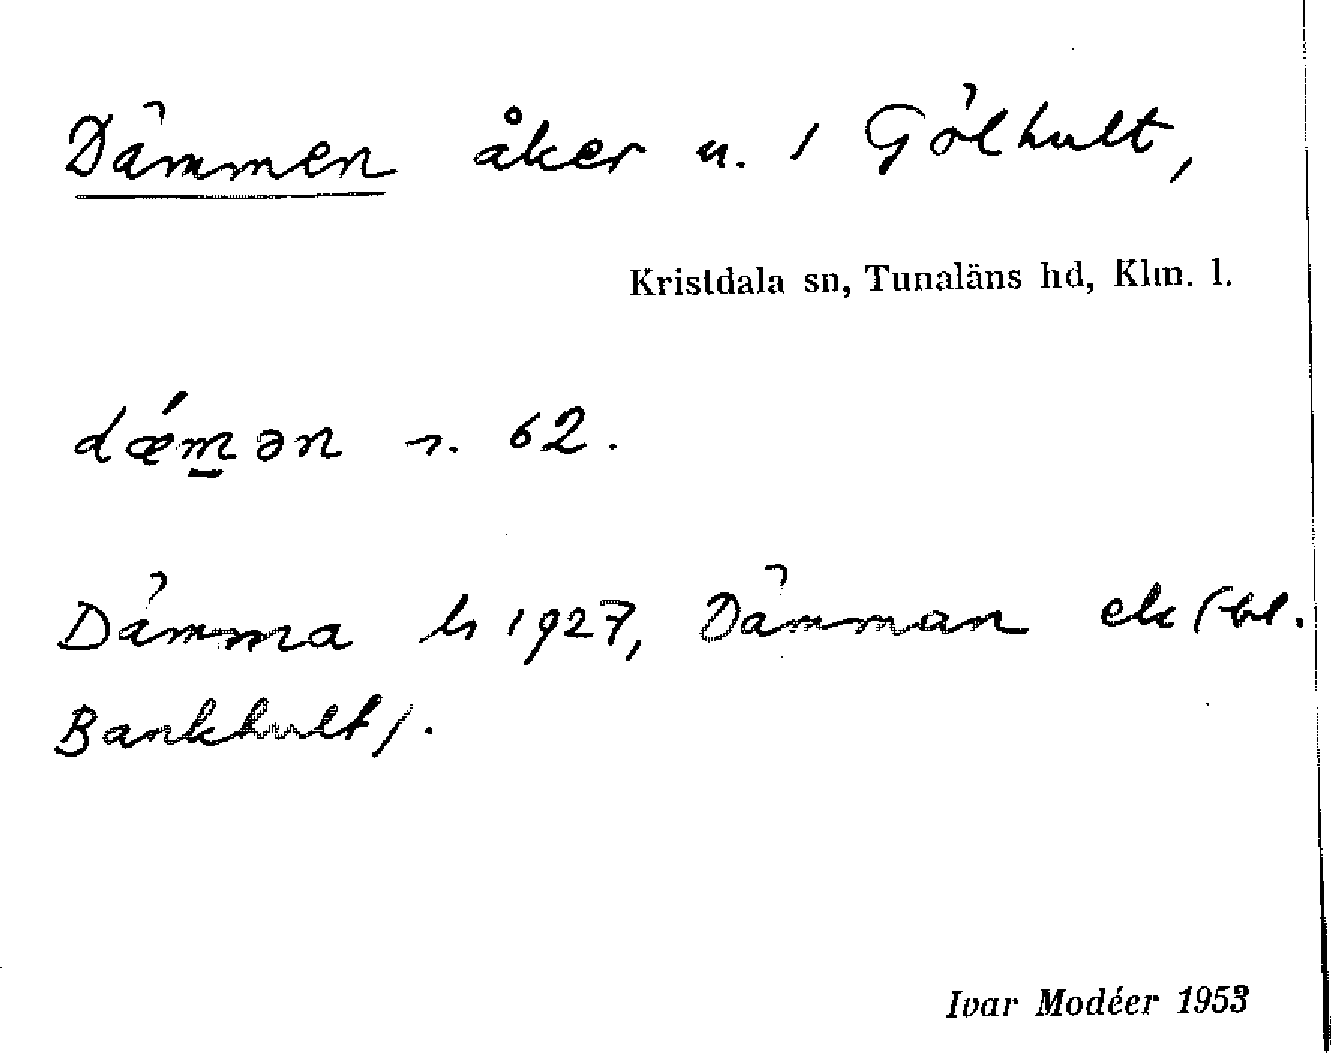 Dämmen åker u. 1 Gölhult,
Kristdala sn, Tunaläns hd, Klm. l.
dǽm̲ən 62.
Dämma hs 1927, Dämman ek (bl.
Bankhult).
Ivar Modéer 1953